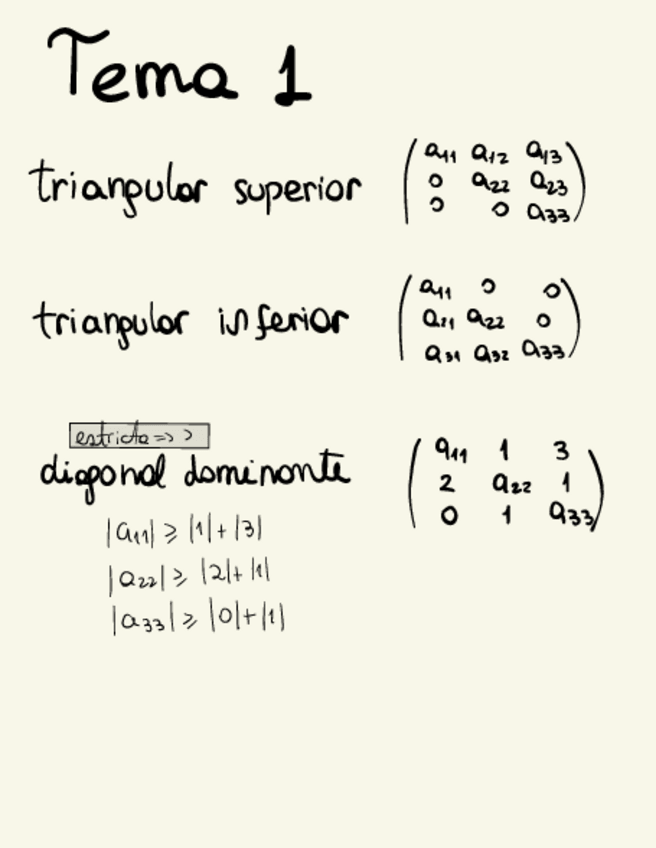 Tema 1
triangular superior
a11 a12 a13
0 a22 a23
0 0 a33
triangular inferior
a11 0 0
a21 a22 0
a31 a32 a33
estricta => >
diagonal dominante
a11 1 3
2 a22 1
0 1 a33
|a11| ≥ |1|+|3|
|a22| ≥ |2|+|1|
|a33| ≥ |0|+|1|